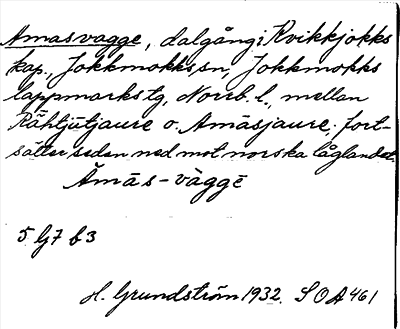 Amasvagge, dalgång i Kvikkjokks
kap., Jokkmokks sn, Jokkmokks
lappmarks tg, Norrb. l., mellan
Råhtjutjaure o. Amāsjaure; fort-
sätter sedan ned mot norska låglandet.
Ămās-vàggē
5 G7 b3
H. Grundström 1932. SOA 461